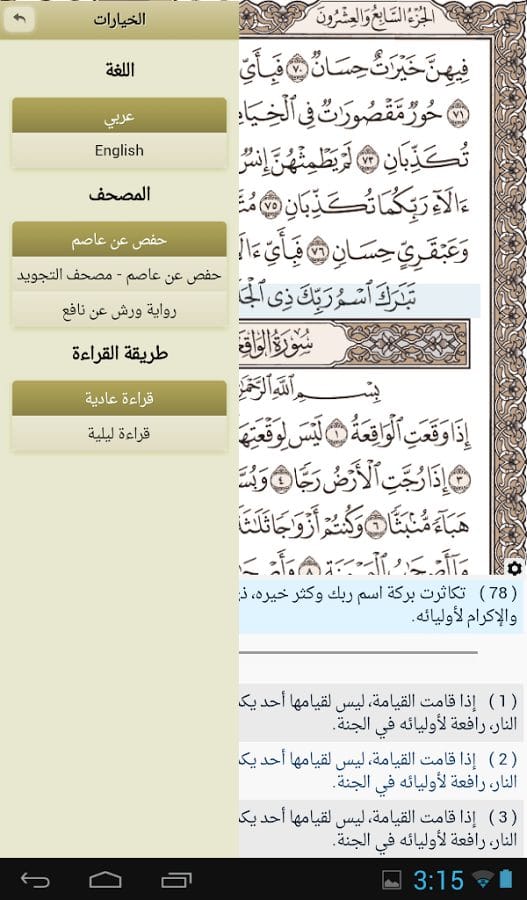 الخيارات
اللغة
عربي
English
المصحف
حفص عن عاصم
حفص عن عاصم - مصحف التجويد
رواية ورش عن نافع
طريقة القراءة
قراءة عادية
قراءة ليلية
الجزء السابع والعشرون
فِيهِنَّ خَيْرَٰتٌ حِسَانٌ ۝٧٠ فَبِأَيِّ
۝٧١ حُورٌ مَّقْصُورَٰتٌ فِي ٱلْخِيَامِ
تُكَذِّبَانِ ۝٧٣ لَمْ يَطْمِثْهُنَّ إِنسٌ
ءَالَآءِ رَبِّكُمَا تُكَذِّبَانِ ۝٧٥
وَعَبْقَرِيٍّ حِسَانٍ ۝٧٦ فَبِأَيِّ
تَبَٰرَكَ ٱسْمُ رَبِّكَ ذِي
سُورَةُ الواقعة
بِسْمِ ٱللَّهِ
إِذَا وَقَعَتِ ٱلْوَاقِعَةُ ۝١ لَيْسَ لِوَقْعَتِهَا
۝٣ إِذَا رُجَّتِ ٱلْأَرْضُ رَجًّا ۝٤
هَبَآءً مُّنۢبَثًّا ۝٦ وَكُنتُمْ أَزْوَٰجًا ثَلَٰثَةً
( 78 ) تكاثرت بركة اسم ربك وكثر خيره،
والإكرام لأوليائه.
( 1 ) إذا قامت القيامة، ليس لقيامها أحد
النار، رافعة لأوليائه في الجنة.
( 2 ) إذا قامت القيامة، ليس لقيامها أحد
النار، رافعة لأوليائه في الجنة.
( 3 ) إذا قامت القيامة، ليس لقيامها أحد
النار، رافعة لأوليائه في الجنة.
3:15